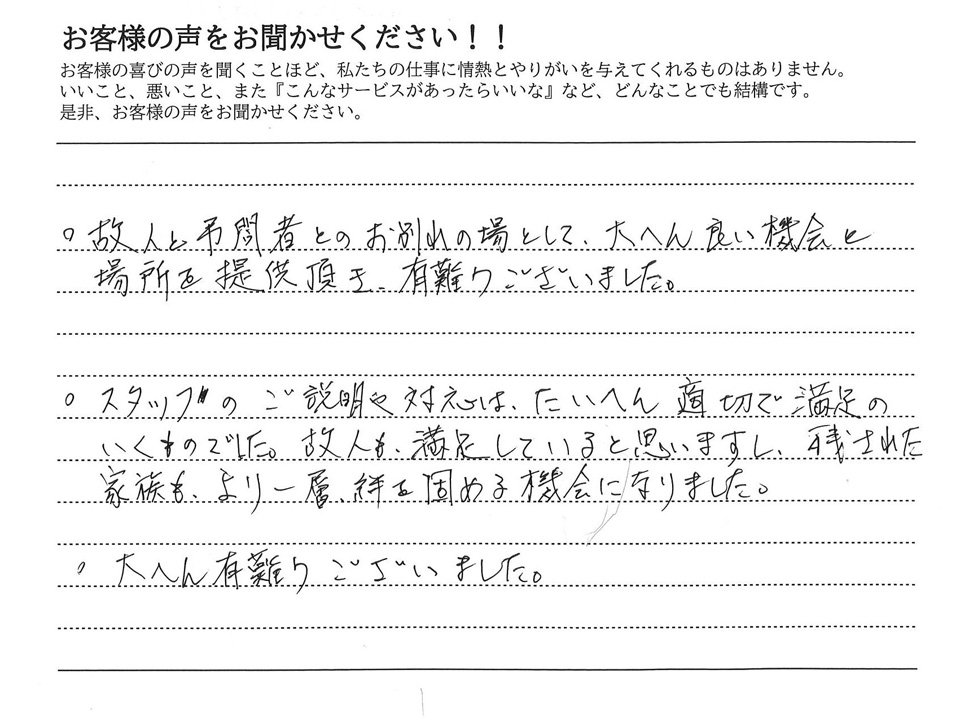 お客様の声をお聞かせください！！
お客様の喜びの声を聞くことほど、私たちの仕事に情熱とやりがいを与えてくれるものはありません。
いいこと、悪いこと、また『こんなサービスがあったらいいな』など、どんなことでも結構です。
是非、お客様の声をお聞かせください。
○ 故人と弔問者とのお別れの場として、大へん良い機会と
場所を提供頂き、有難うございました。
○ スタッフのご説明や対応は、たいへん適切で満足の
いくものでした。故人も、満足していると思いますし、残された
家族も、より一層、絆を固める機会になりました。
○ 大へん有難うございました。